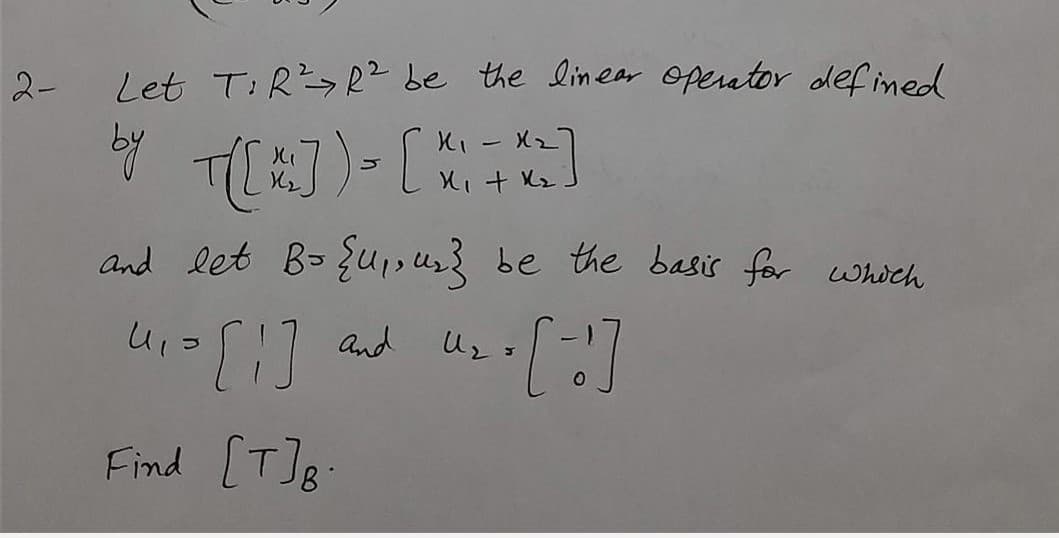 2- Let T: R² → R² be the linear operator defined
by T([x₁ x₂]) = [x₁ - x₂ x₁ + x₂]
and let B = {u₁, u₂} be the basis for which
u₁ = [1 1] and u₂ = [-1 0]
Find [T]B.